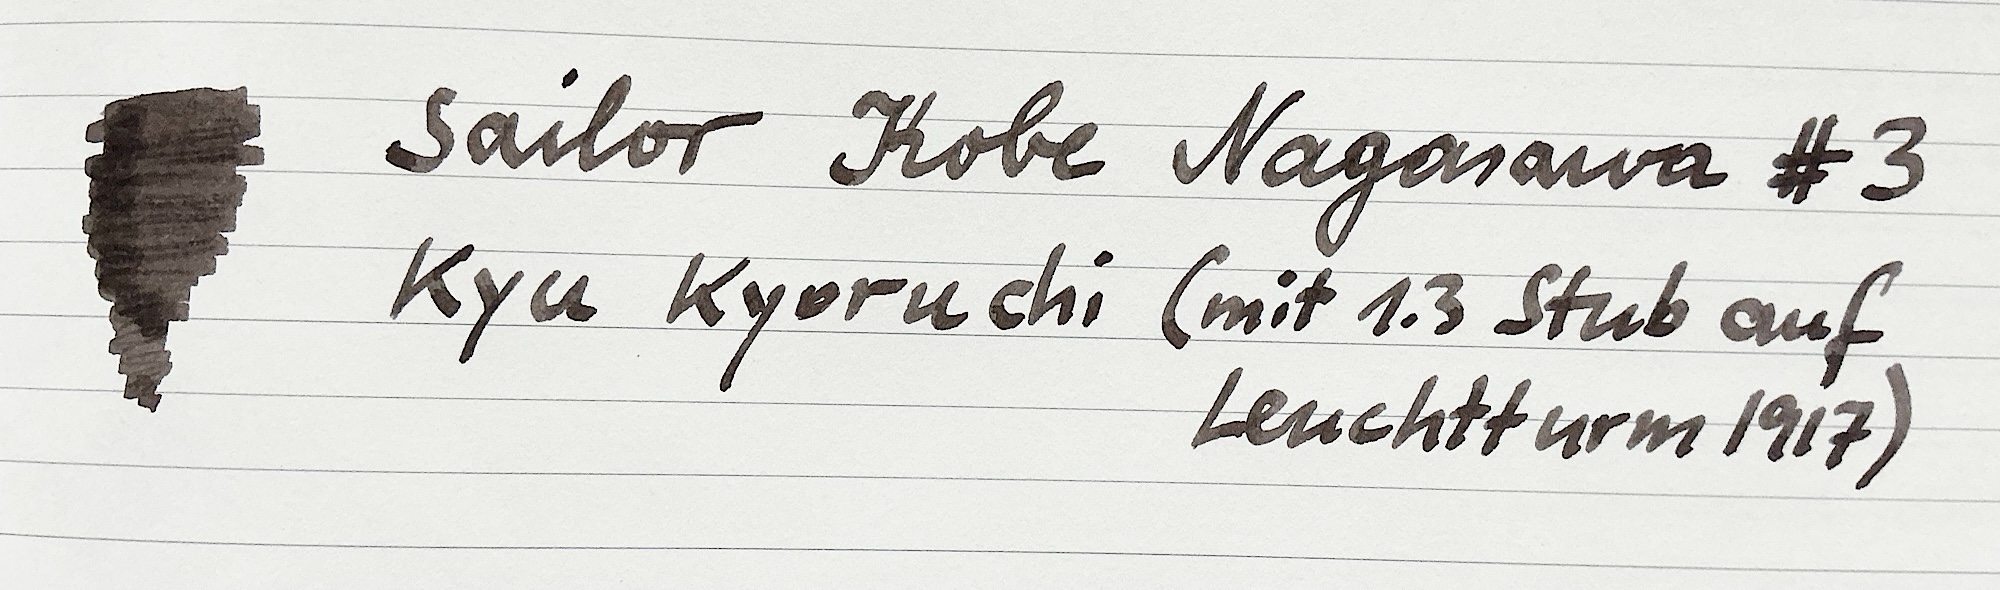 Sailor Kobe Nagasawa #3
Kyu Kyoruchi (mit 1.3 Stub auf
Leuchttturm 1917)